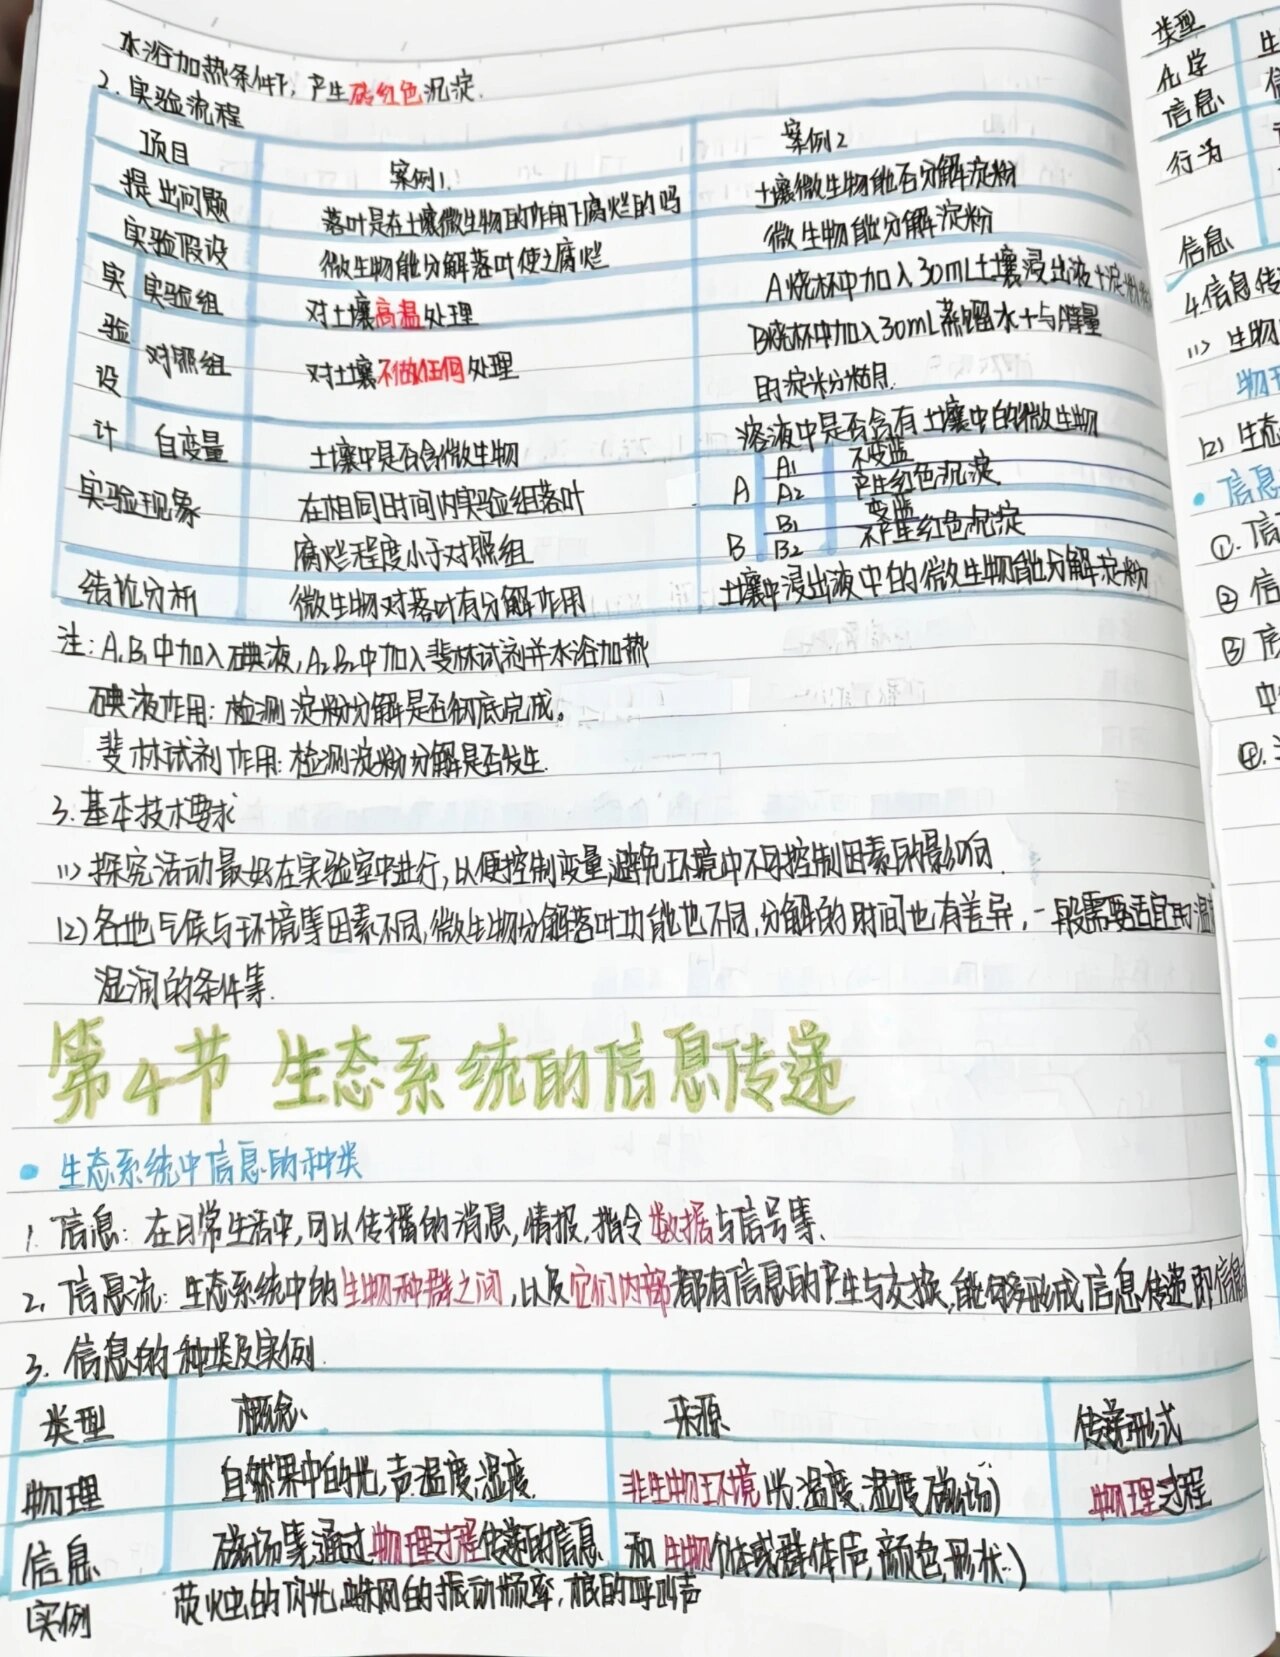 水浴加热条件下，产生砖红色沉淀.
2. 实验流程
项目 案例1. 案例2
提出问题 落叶是在土壤微生物的作用下腐烂的吗 土壤微生物能否分解淀粉
实验假设 微生物能分解落叶使之腐烂 微生物能分解淀粉
实验设计 实验组 对土壤高温处理 A烧杯中加入30mL土壤浸出液+淀粉
对照组 对土壤不做任何处理 B烧杯中加入30mL蒸馏水+与A等量
的淀粉糊.
自变量 土壤中是否含微生物 溶液中是否含有土壤中的微生物
实验现象 在相同时间内实验组落叶
腐烂程度小于对照组
A A1 不变蓝
A2 产生红色沉淀
B B1 变蓝
B2 不产生红色沉淀
结论分析 微生物对落叶有分解作用 土壤中浸出液中的微生物能分解淀粉
注：A1B1中加入碘液，A2B2中加入斐林试剂并水浴加热
碘液作用：检测淀粉分解是否彻底完成。
斐林试剂作用：检测淀粉分解是否发生.
3. 基本技术要求
(1) 探究活动最好在实验室中进行，以便控制变量，避免环境中不可控制因素的影响.
(2) 各地气候与环境等因素不同，微生物分解落叶功能也不同，分解的时间也有差异，一般需要适宜的温
湿润的条件等.
第4节 生态系统的信息传递
• 生态系统中信息的种类
1. 信息：在日常生活中，可以传播的消息，情报，指令数据与信号等.
2. 信息流：生态系统中的生物种群之间，以及它们内部都有信息的产生与交换，能够形成信息传递即信息
3. 信息的种类及实例.
类型 概念 来源 传递形式
物理信息 自然界中的光，声，温度，湿度，
磁场等，通过物理过程传递的信息
非生物环境(光、温度、湿度、磁场)
和生物个体或群体(声，颜色，形状)
物理过程
实例 萤火虫的闪光，蛛网的振动频率，狼的呼叫声
类型
化学
信息
行为
信息
4. 信息传
(1) 生物
(2) 生态
• 信息
①. 信
② 信
③ 信
中
④.